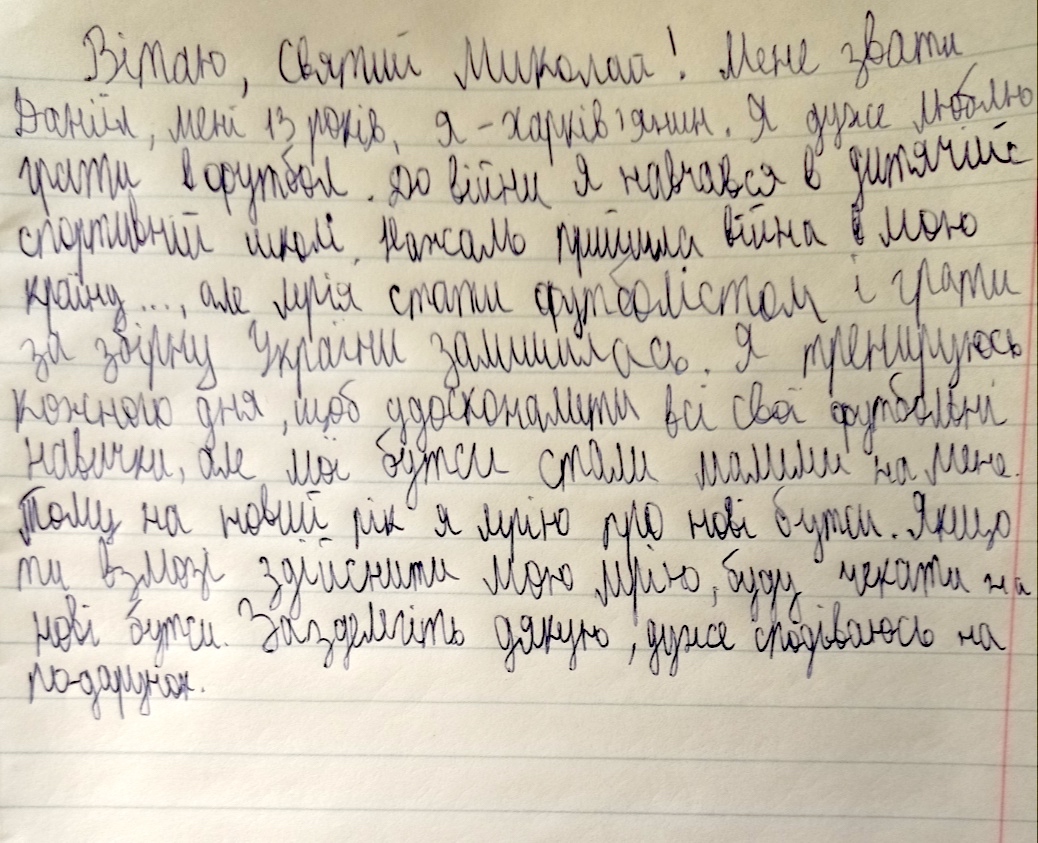 Вітаю, Святий Миколай! Мене звати
Данііл, мені 13 років, я - харків'янин. Я дуже люблю
грати в футбол. До війни я навчався в дитячій
спортивній школі. Нажаль прийшла війна в мою
країну..., але мрія стати футболістом і грати
за збірну України залишилась. Я тренируюсь
кожного дня, щоб удосконалити всі свої футбольні
навички, але мої бутси стали малими на мене.
Тому на новий рік я мрію про нові бутси. Якщо
ти взмозі здійснити мою мрію, буду чекати на
нові бутси. Заздалегіть дякую, дуже сподіваюсь на
подарунок.